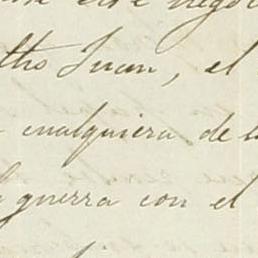 este nego
tho Juan, el
cualquiera de l
guerra con el